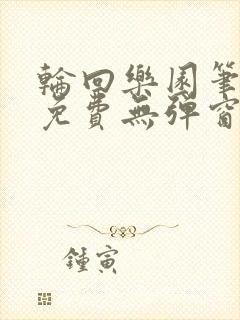 輪回樂園筆
免費無彈窗
鍾寅